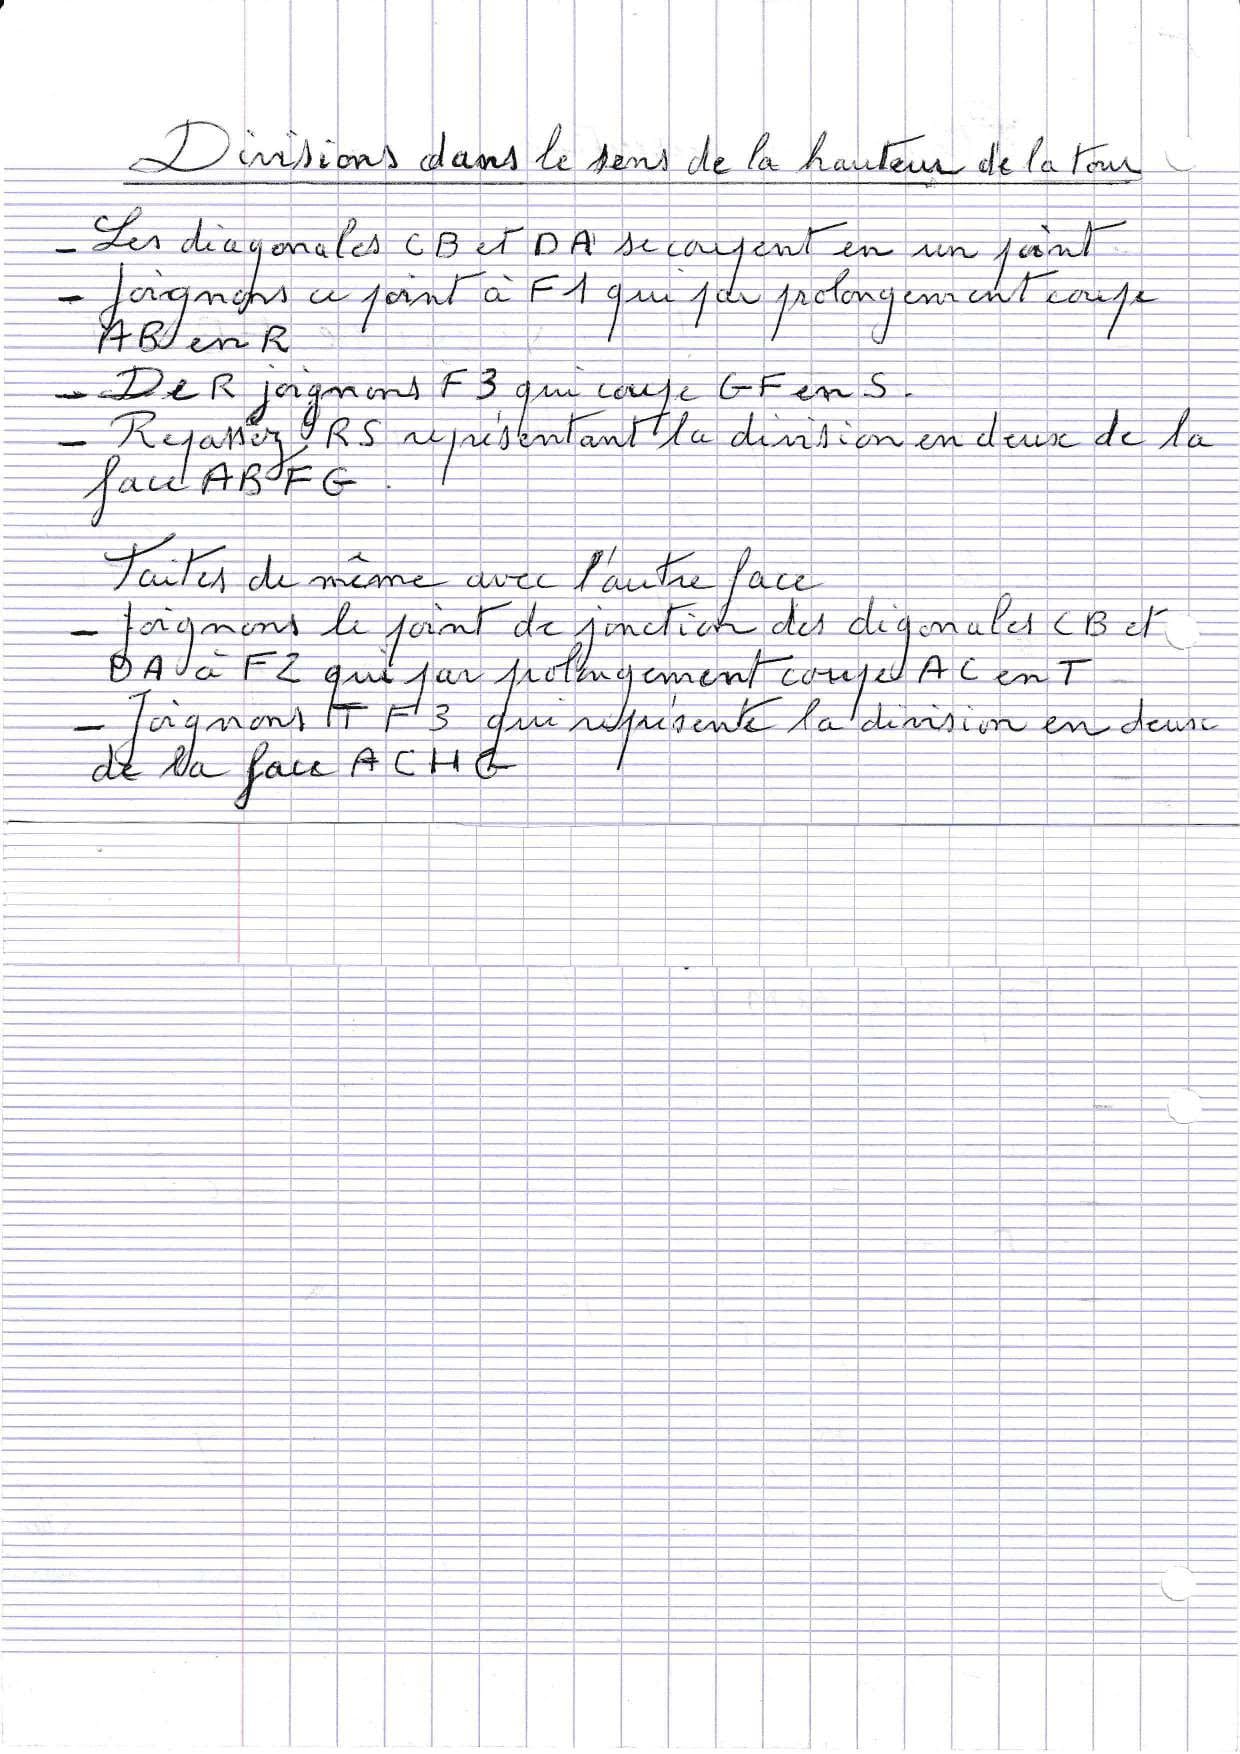 Divisions dans le sens de la hauteur de la tour
- Les diagonales CB et DA se coupent en un point
- Joignons ce point à F1 qui par prolongement coupe
AB en R
- De R joignons F3 qui coupe GF en S.
- Repassez RS représentant la division en deux de la
face ABFG.
Faites de même avec l'autre face
- Joignons le point de jonction des digonales CB et
DA à F2 qui par prolongement coupe AC en T
- Joignons T F3 qui représente la division en deux
de la face ACHG